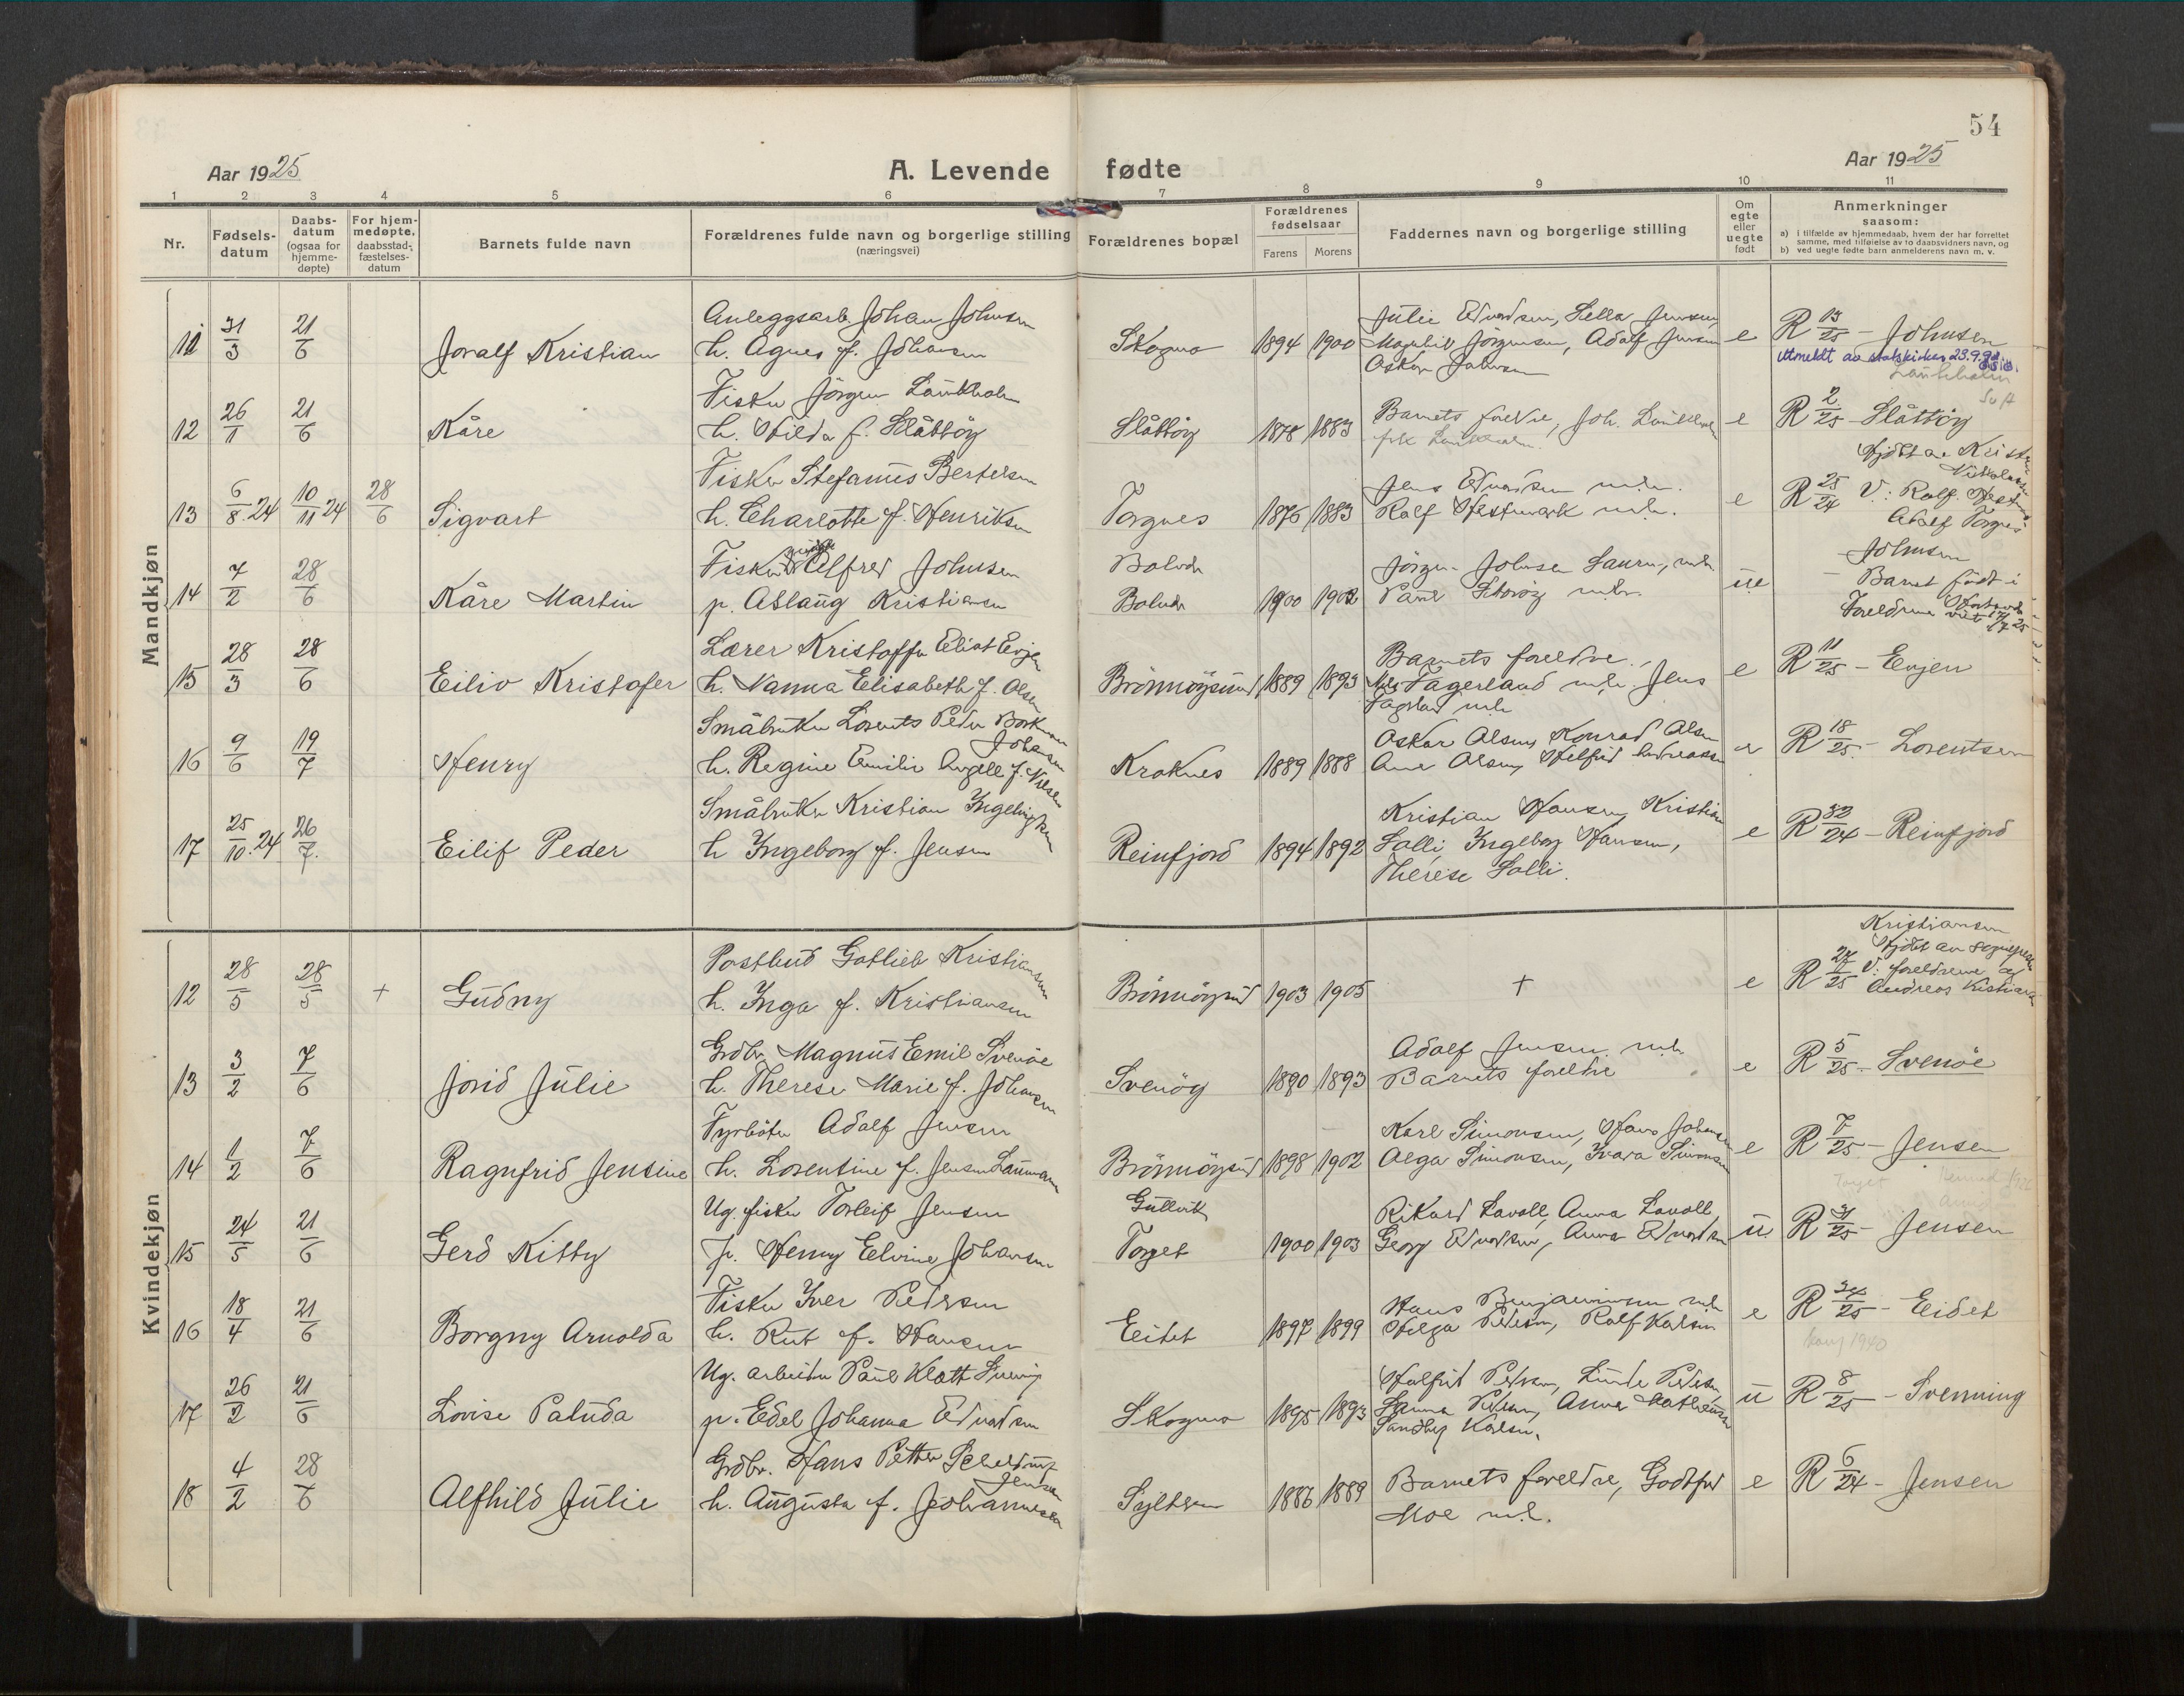 54
Aar 1925
A. Levende fødte
Aar 1925
1 2 3 4 5 6 7 8 9 10 11
Nr.
Fødsels-datum
Daabs-datum (ogsaa for hjemme-døpte)
For hjem-medøpte, daabsstad-fæstelses-datum
Barnets fulde navn
Forældrenes fulde navn og borgerlige stilling (næringsvei)
Forældrenes bopæl
Forældrenes fødselsaar
Farens Morens
Faddernes navn og borgerlige stilling
Om egte eller uegte født
Anmerkninger saasom:
a) i tilfælde av hjemmedaab, hvem der har forrettet samme, med tilføielse av to daabsvidners navn, og
b) ved uegte fødte barn anmelderens navn m. v.
Mandkjøn
11 31/3 21/6 Joralf Kristian
Anleggsarb. Johan Johnsen
h. Agnes f. Johansen
Skogmo 1894 1900
Oskar Johnsen
e R 13/25 - Johnsen
Utmeldt av statskirken 23.9.
12 26/1 21/6 Kåre
Fisker Jörgen Laukholm
h. Hilda f. Slåttöy
Slåttöy 1878 1883
Barnets foreldre, Joh. Laukholm
frk Laukholm
e R 2/25 - Slåttöy
13 6/8.24 10/11 24 28/6 Sigvart
Fisker Stefanus Bertelsen
h. Charlotte f. Henriksen
Torgnes 1876 1883
Jens Edvardsen m.h.
Rolf Hestmark m.h.
e R 25/24
14 7/2 28/6 Kåre Martin
Fisker Alfred Johnsen
p. Aslaug Kristiansen
Bolvær
Bolvær 1900 1902
Jörgen Johnsen
ue Johnsen
Barnet födt i
15 28/3 28/6 Eiliv Kristofer
Lærer Kristoffer Eliot Evjen
h. Nanna Elisabeth f. Olsen
Brönnöysund 1889 1893
Barnets foreldre.
Fagerland m.h. Jens
e R 11/25 - Evjen
16 9/6 19/7 Henry
Småbruker Lorents Peder
Johansen
h. Regine Emilie Angell f. Nilsen
Kroknes 1889 1888
Oskar Olsen, Konrad Olsen
e R 18/25 - Lorentsen
17 25/10.24 26/7. Eilif Peder
Småbruker Kristian Ingebrigtsen
h Ingeborg f. Jensen
Reinfjord 1894 1892
Kristian Hansen, Kristian
Salli, Ingeborg Hansen,
Therese Salli.
e R 32/24 - Reinfjord
Kvindekjøn
12 28/5 28/5 + Gudny
Postbud Gotlieb Kristiansen
h. Inga f. Kristiansen
Brönnöysund 1903 1905
+
e R 27/25
Kristiansen
V: foreldrene og
Andreas Kristiansen
13 3/2 7/6 Jorid Julie
Grdbr. Magnus Emil Svenöe
h. Therese Marie f. Johansen
Svenöy 1890 1893
Adolf Jensen m.h.
Barnets foreldre
e R 5/25 - Svenöe
14 1/2 7/6 Ragnfrid Jensine
Fyrböter Adolf Jensen
h. Lorentine f. Jensen
Brönnöysund 1898 1902
Karl Simonsen, Hans Johansen
Olga Simonsen, Ivara Simonsen
e R 7/25 - Jensen
15 24/5 21/6 Gerd Kitty
Ug. fisker Torleif Jensen
p. Henny Elvine Johansen
Gullvik
Torget 1900 1903
Rikard Lavoll, Anna Lavoll,
Georg Edvardsen, Anna Edvardsen
u R 31/25 - Jensen
16 18/4 21/6 Borgny Arnolda
Fisker Iver Pedersen
h. Rut f. Hansen
Eidet 1897 1899
Hans Benjaminsen m.h
Helga Pedersen, Rolf Karlsen
e R 24/25 - Eidet
Konf 1940
17 26/2 21/6 Lovise Paluda
Ug. arbeider Paul Klott
p. Edel Johanna Edvardsen
Skogmo 1895 1893
Halfrid Pedersen, Pedersen
Sanna Pedersen, Anna
Karlsen.
u R 8/25 - Svenning
18 4/2 28/6 Alfhild Julie
Grdbr. Hans Petter Scheldrup
Jensen
h. Augusta f. Johannessen
1886 1889
Barnets foreldre, Godtfred
Moe m.h.
e R 6/24 - Jensen